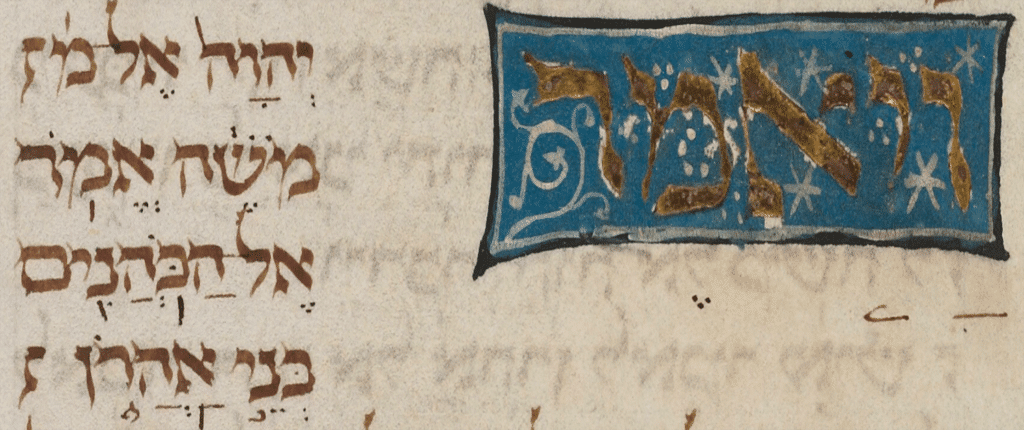 וַיֹּאמֶר
יְהוָה אֶל מ
מֹשֶׁה אֱמֹר
אֶל הַכֹּהֲנִים
בְּנֵי אַהֲרֹן